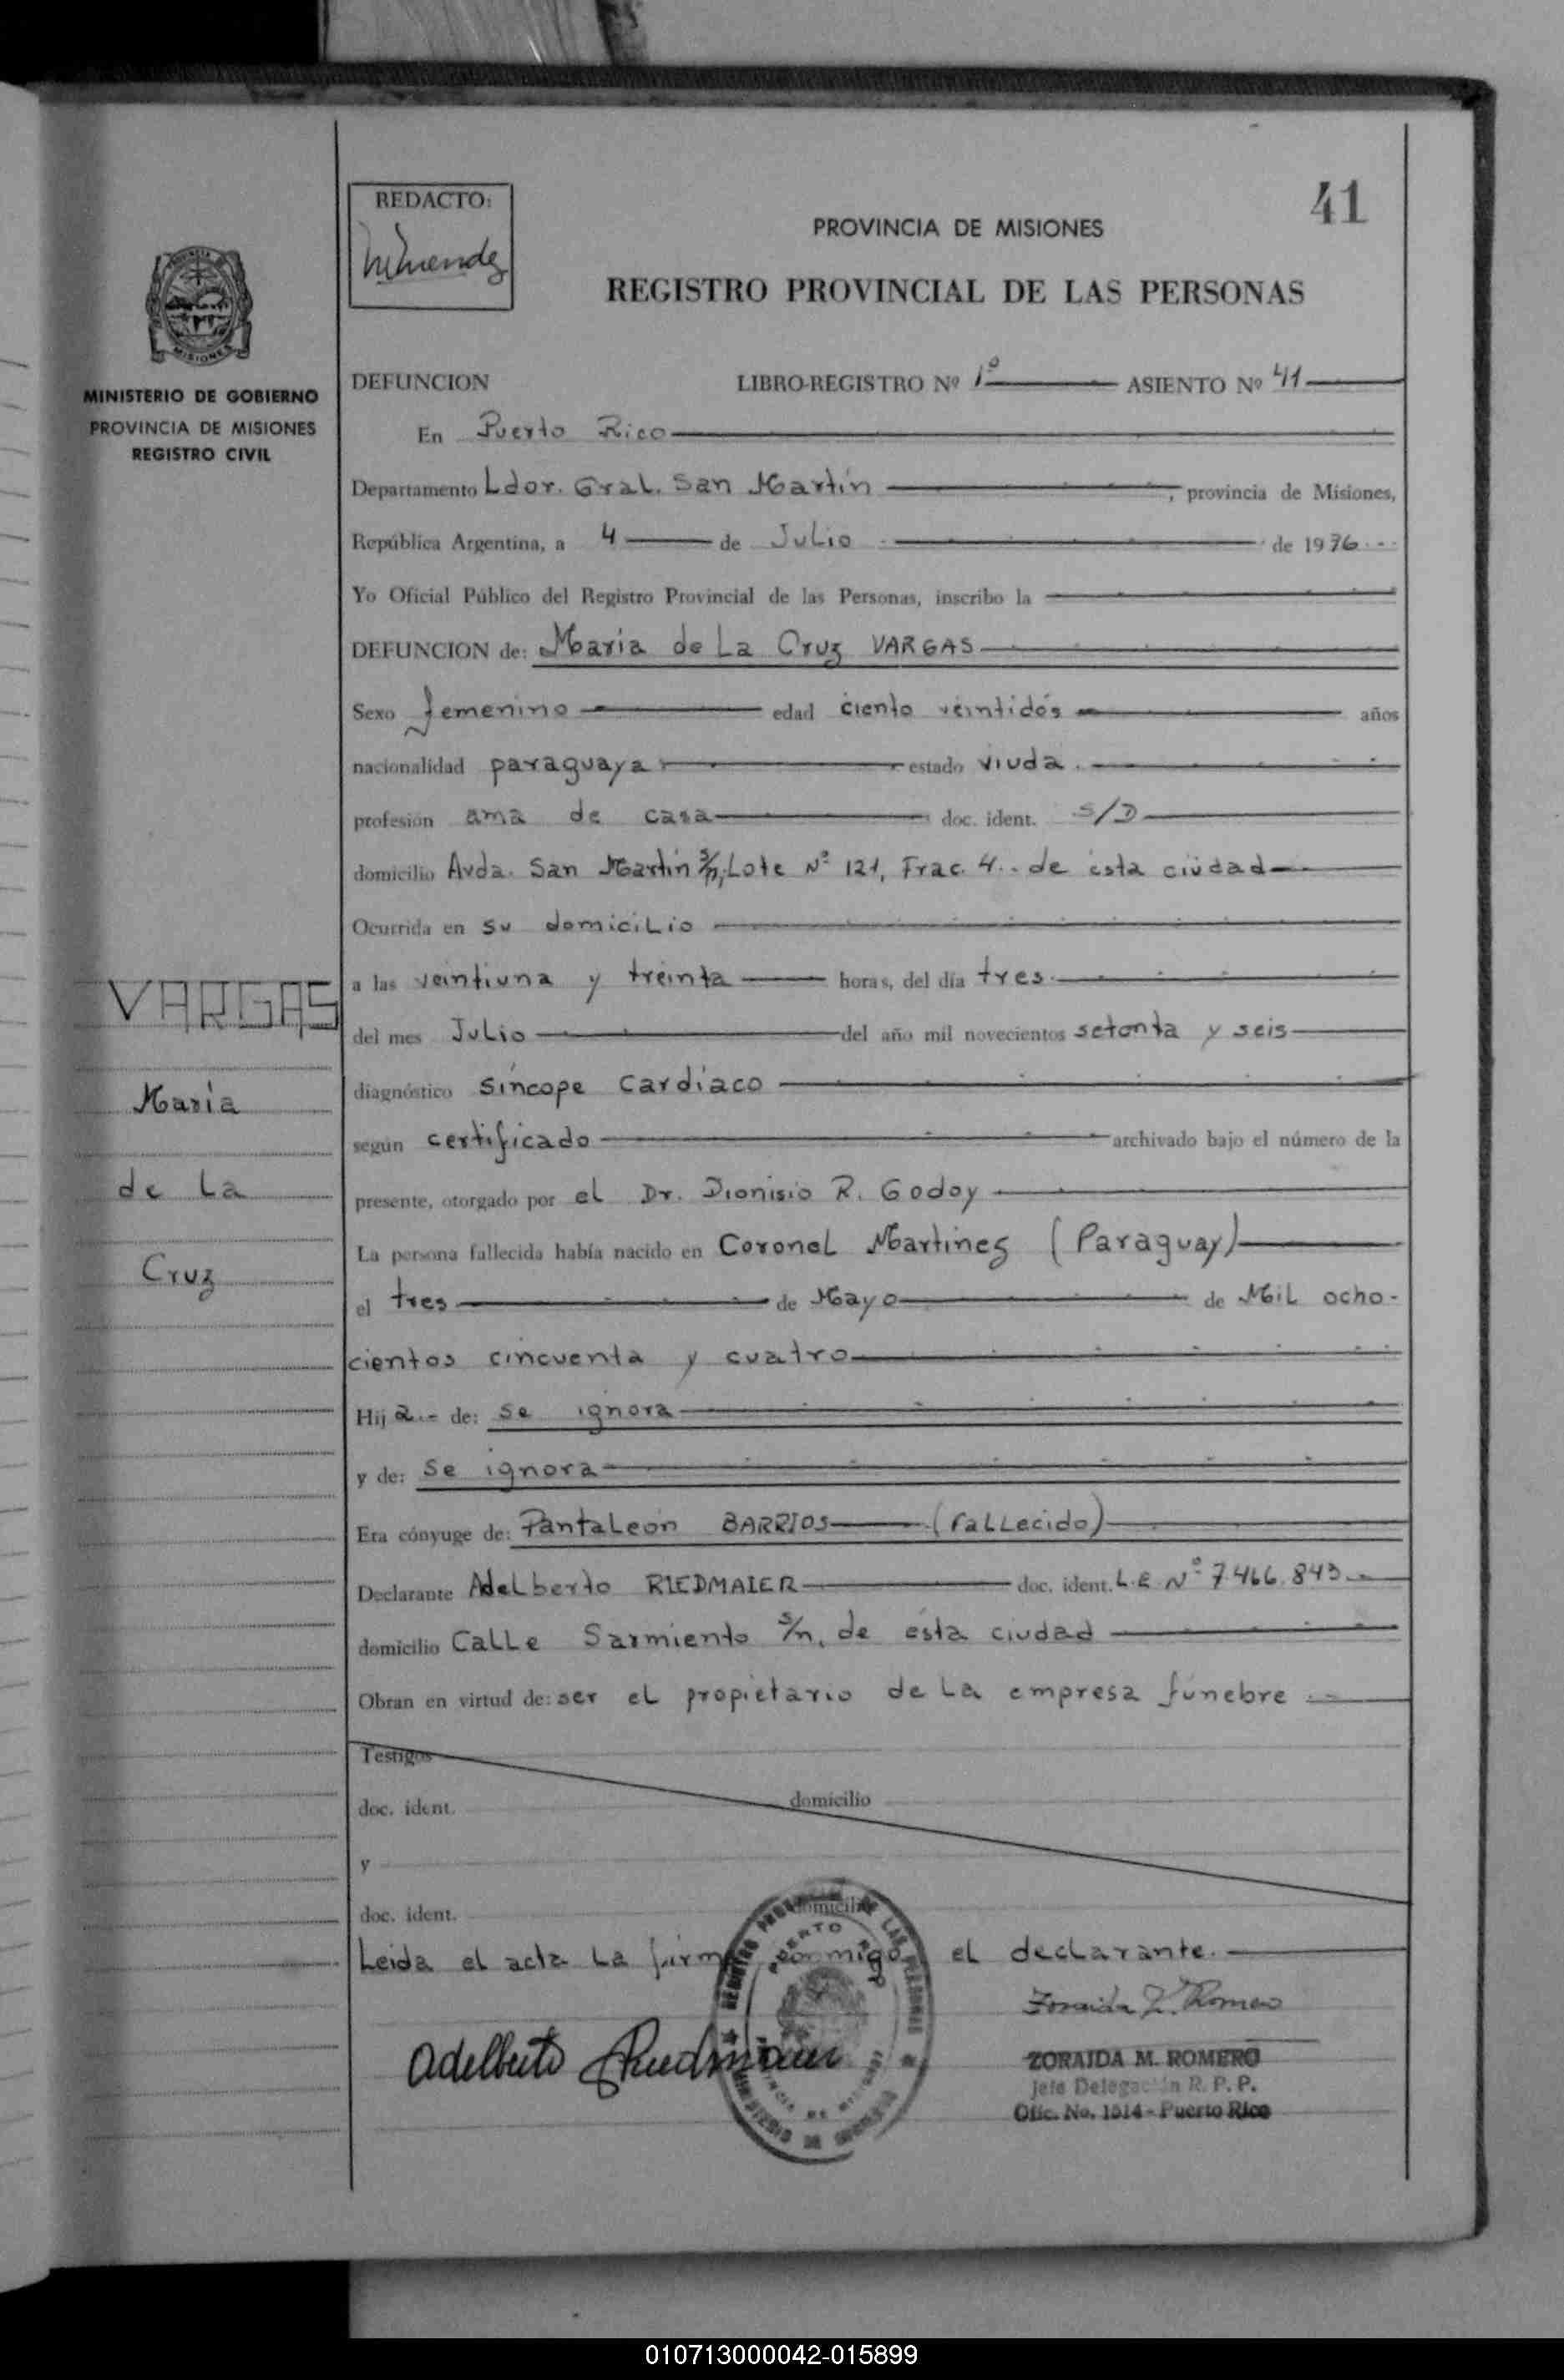 41
REDACTO:
PROVINCIA DE MISIONES
REGISTRO PROVINCIAL DE LAS PERSONAS
MISIONES
MINISTERIO DE GOBIERNO
PROVINCIA DE MISIONES
REGISTRO CIVIL
DEFUNCION LIBRO-REGISTRO Nº 1º ASIENTO Nº 41
En Puerto Rico
Departamento Ldor. Gral. San Martín, provincia de Misiones,
República Argentina, a 4 de Julio de 1976
Yo Oficial Público del Registro Provincial de las Personas, inscribo la
DEFUNCION de: Maria de La Cruz VARGAS
Sexo femenino edad ciento veintidós años
nacionalidad paraguaya estado viuda.
profesión ama de casa doc. ident. S/D
domicilio Avda. San Martín s/n, Lote Nº 121, Frac. 4.- de ésta ciudad
Ocurrida en su domicilio
a las veintiuna y treinta horas, del día tres
del mes Julio del año mil novecientos setenta y seis
diagnóstico síncope cardíaco
según certificado archivado bajo el número de la
presente, otorgado por el Dr. Dionisio R. Godoy
La persona fallecida había nacido en Coronel Martines (Paraguay)
el tres de Mayo de Mil ocho-
cientos cincuenta y cuatro
Hija.- de: se ignora
y de: se ignora
Era cónyuge de: Pantaleón BARRIOS (fallecido)
Declarante Adelberto RIEDMAIER doc. ident. L.E. Nº 7.466.843
domicilio Calle Sarmiento s/n, de ésta ciudad
Obran en virtud de: ser el propietario de la empresa fúnebre
Testigos
doc. ident. domicilio
y
doc. ident. domicilio
Leida el acta la firma conmigo el declarante.
VARGAS
María
de la
Cruz
Adelberto Riedmaier
Zoraida M. Romero
ZORAIDA M. ROMERO
Jefe Delegación R. P. P.
Ofic. No. 1514 - Puerto Rico
010713000042-015899